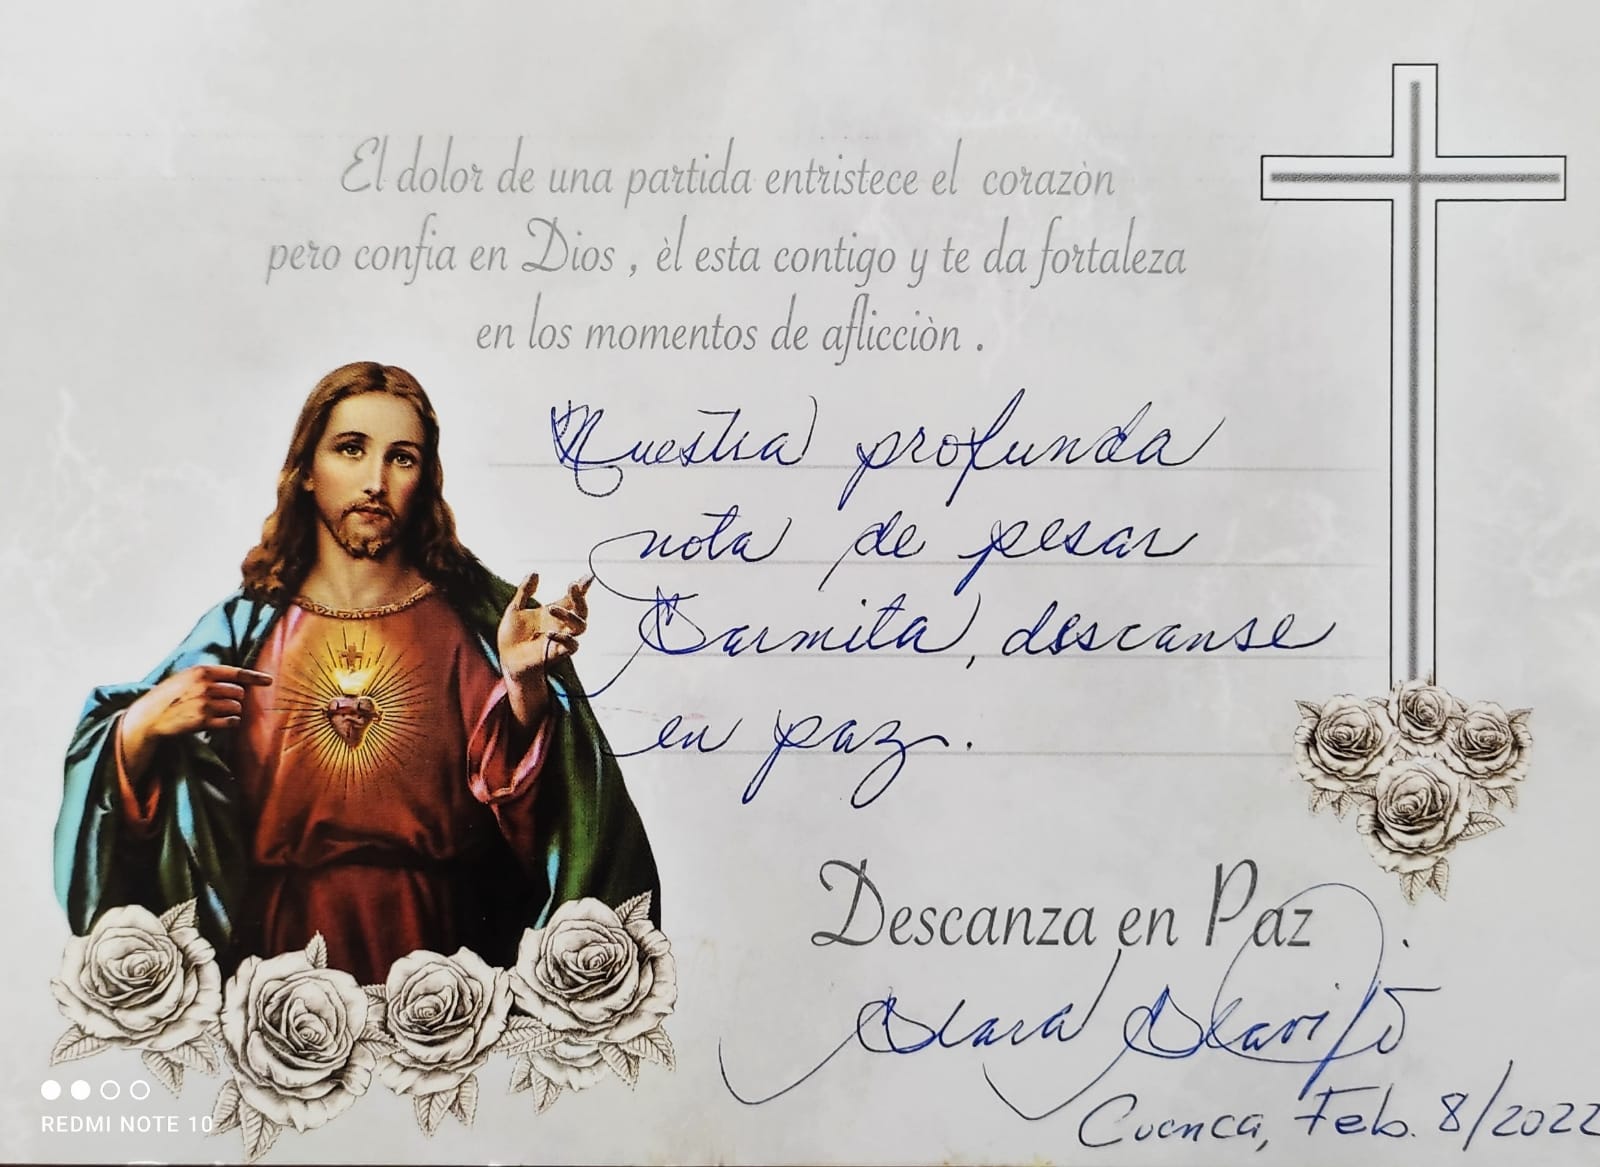 El dolor de una partida entristece el corazòn
pero confia en Dios , èl esta contigo y te da fortaleza
en los momentos de aflicciòn .
Nuestra profunda
nota de pesar
Carmita, descanse
en paz.
Descanza en Paz
Clara Clavijo
Cuenca, Feb. 8/2022
REDMI NOTE 10